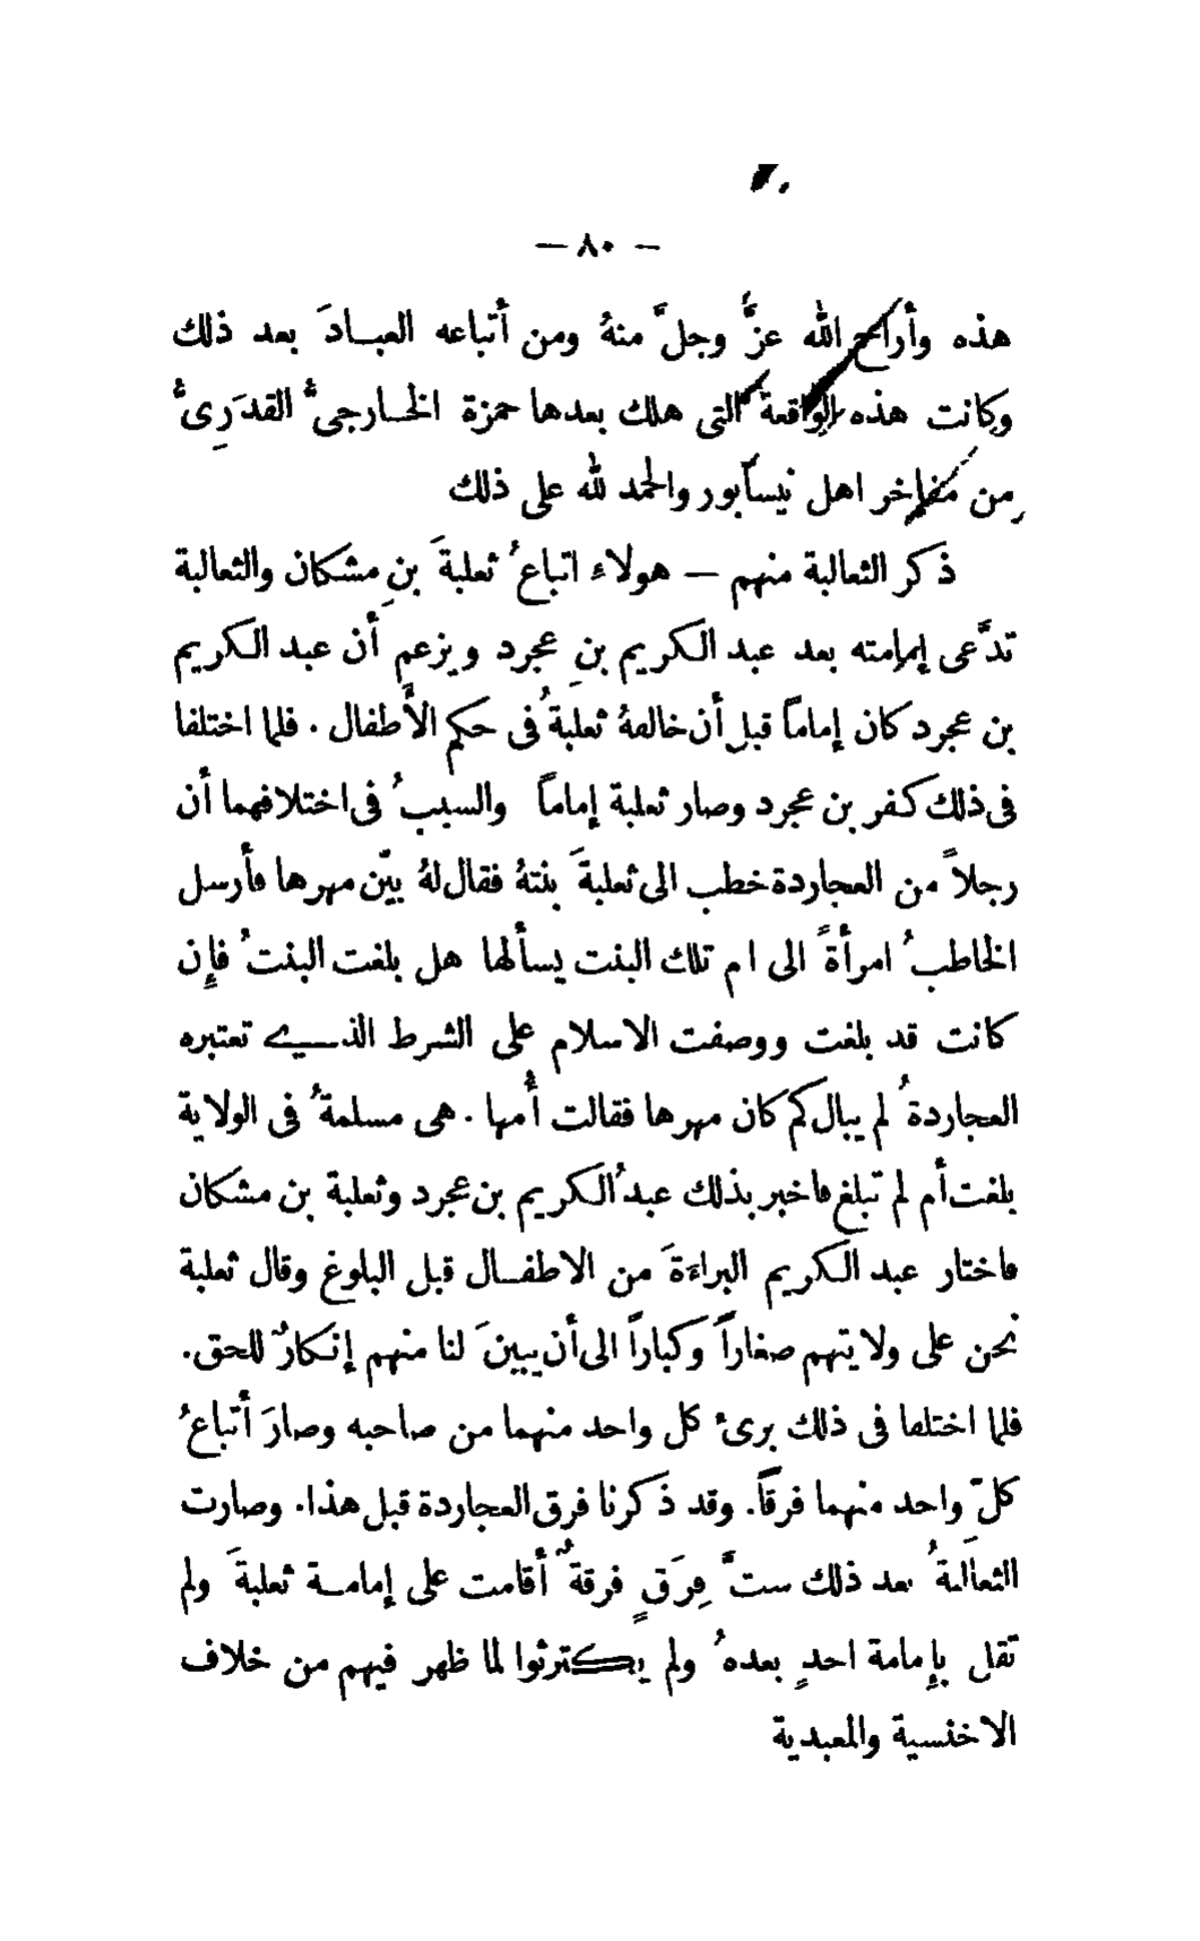 — ٨٠ —
هذه وأراح الله عزَّ وجلَّ منهُ ومن أتباعه العبادَ بعد ذلك
وكانت هذه الواقعة التى هلك بعدها حمزة الخارجىُّ القدَرِىُّ
من مفاخر اهل نيسابور والحمد لله على ذلك
ذكر الثعالبة منهم — هولاء اتباعُ ثعلبةَ بنِ مشكان والثعالبة
تدَّعى إمامته بعد عبد الكريم بنِ عجرد ويزعم أن عبد الكريم
بن عجرد كان إماماً قبل أن خالفهُ ثعلبةُ فى حكم الأطفال . فلما اختلفا
فى ذلك كفر بن عجرد وصار ثعلبة إماماً والسببُ فى اختلافهما أن
رجلاً من العجاردة خطب الى ثعلبةَ بنتهُ فقال لهُ بيّن مهرها فأرسل
الخاطبُ امرأةً الى ام تلك البنت يسألها هل بلغت البنتُ فإِن
كانت قد بلغت ووصفت الاسلام على الشرط الذي تعتبره
العجاردةُ لم يبال كم كان مهرها فقالت أُمها . هى مسلمةُ فى الولاية
بلغت أم لم تبلغ فاخبر بذلك عبدُ الكريم بن عجرد وثعلبة بن مشكان
فاختار عبد الكريم البراءةَ من الاطفال قبل البلوغ وقال ثعلبة
نحن على ولايتهم صغاراً وكباراً الى أن يبينَ لنا منهم إنكارٌ للحق.
فلما اختلفا فى ذلك برىء كل واحد منهما من صاحبه وصارَ أتباعُ
كلّ واحد منهما فرقاً. وقد ذكرنا فرق العجاردة قبل هذا. وصارت
الثعالبةُ بعد ذلك ستَّ فِرَقٍ فرقةٌ أقامت على إمامة ثعلبةَ ولم
تقل بإِمامة احدٍ بعدهُ ولم يكترثوا لما ظهر فيهم من خلاف
الاخنسية والمعبدية